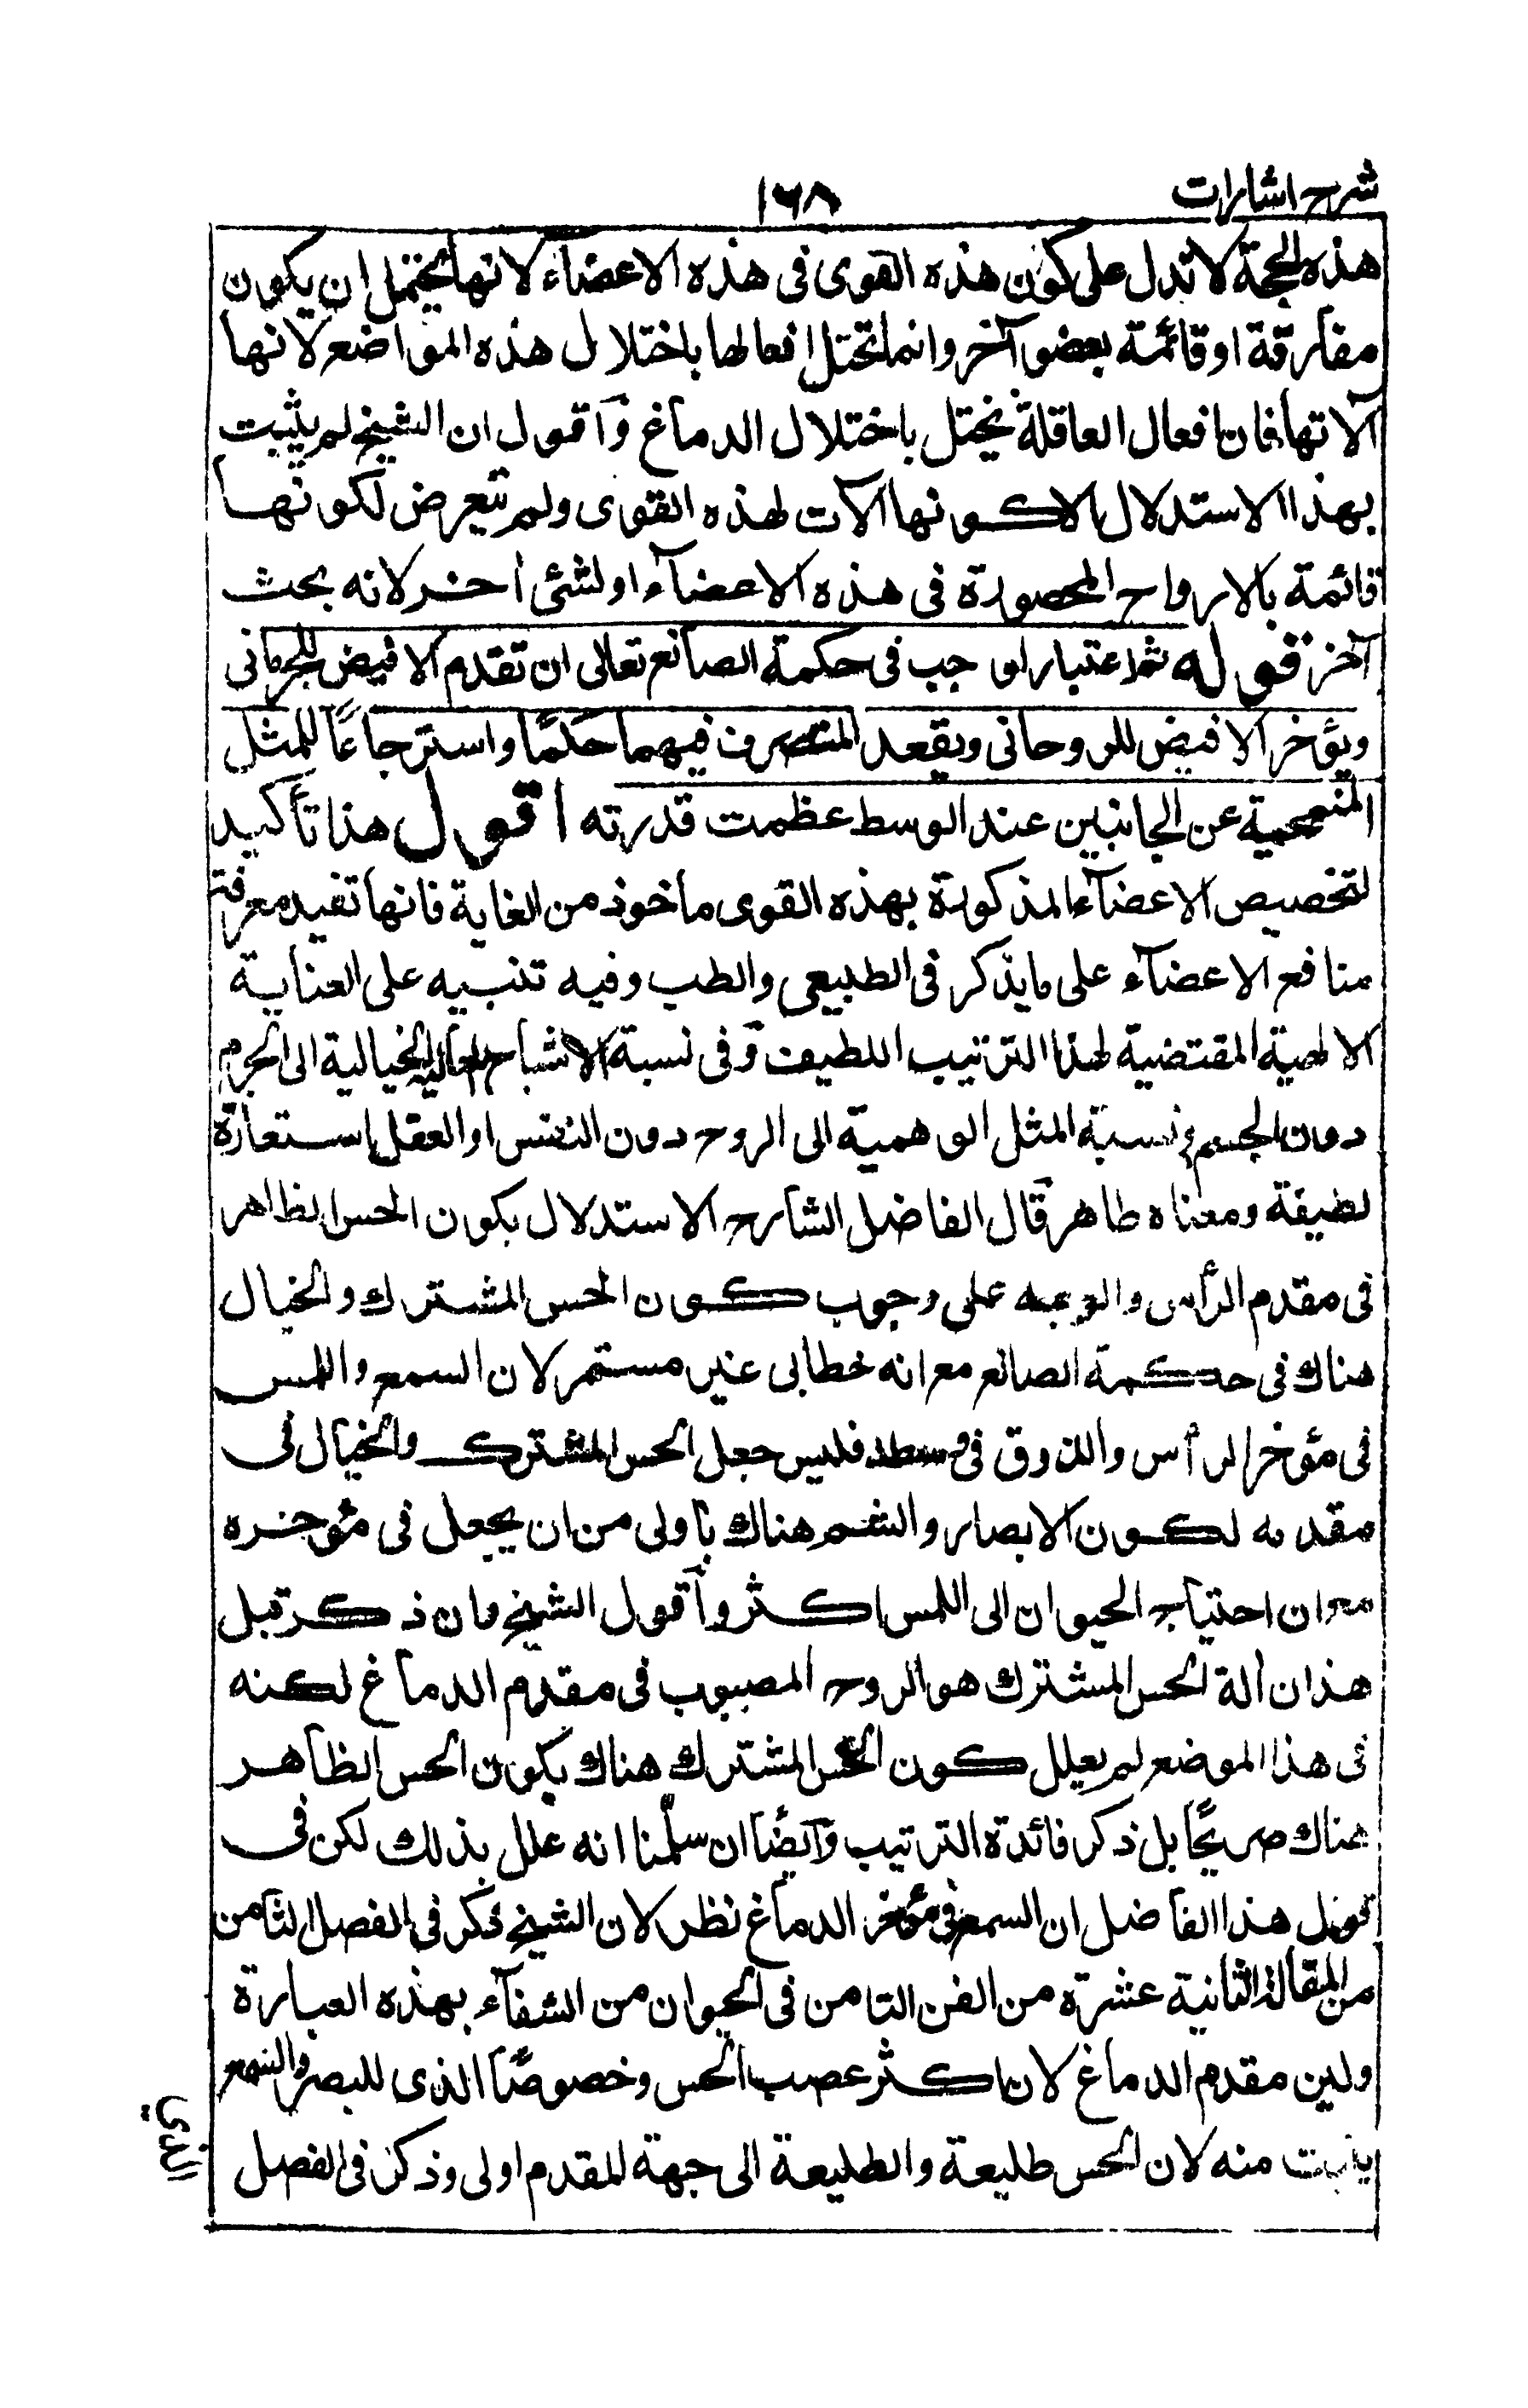 شرح اشارات
١٦٨
هذه الحجة لا تدل على كون هذه القوى فى هذه الاعضآء لانها يحتمل ان يكون
مفارقة او قائمة بعضو آخر وانما تختل افعالها باختلال هذه المواضع لانها
آلاتها فان افعال العاقلة يختل باختلال الدماغ وآقول ان الشيخ لم يثبت
بهذا الاستدلال الا كونها آلآت لهذه القوى ولم يتعرض لكونها
قائمة بالارواح المحصورة فى هذه الاعضآء او لشئى آخر لانه بحث
آخر قوله ثم اعتبار لو جب فى حكمة الصانع تعالى ان تقدم الافيض للجرمانى
ويؤخر الافيض للروحانى ويقعد المتصرف فيهما حكمًا واسترجاعًا للمثل
المنمحية عن الجانبين عند الوسط عظمت قدرته اقول هذا تأكيد
لتخصيص الاعضآء المذكورة بهذه القوى ماخوذ من الغاية فانها تفيد معرفة
منافع الاعضآء على ما يذكر فى الطبيعى والطب وفيه تنبيه على العناية
الالهية المقتضية لهذا الترتيب اللطيف وفى نسبة الاشباح الخيالية الى الجرم
دون الجسم ونسبة المثل الوهمية الى الروح دون النفس او العقل استعارة
لطيفة ومعناه ظاهر قال الفاضل الشارح الاستدلال بكون الحس الظاهر
فى مقدم الرأس والوجه على وجوب كون الحس المشترك والخيال
هناك فى حكمة الصانع مع انه خطابى غير مستمر لان السمع واللمس
فى مؤخر الرأس والذوق فى وسطه فليس جعل الحس المشترك والخيال فى
مقدمه لكون الابصار والشم هناك باولى من ان يجعل فى مؤخره
مع ان احتياج الحيوان الى اللمس اكثر وآقول الشيخ وان ذكر قبل
هذا ان آلة الحس المشترك هو الروح المصبوب فى مقدم الدماغ لكنه
فى هذا الموضع لم يعلل كون الحس المشترك هناك بكون الحس الظاهر
هناك صريحًا بل ذكر فائدة الترتيب وآيضًا ان سلّمنا انه علل بذلك لكن فى
قول هذا الفاضل ان السمع فى مؤخر الدماغ نظر لان الشيخ ذكر فى الفصل الثامن
من المقالة الثانية عشرة من الفن الثامن فى الحيوان من الشفآء بهذه العبارة
ولين مقدم الدماغ لان اكثر عصب الحس وخصوصًا الذى للبصر والسمع
ينبت منه لان الحس طليعة والطليعة الى جهة المقدم اولى وذكر فى الفصل
الذى